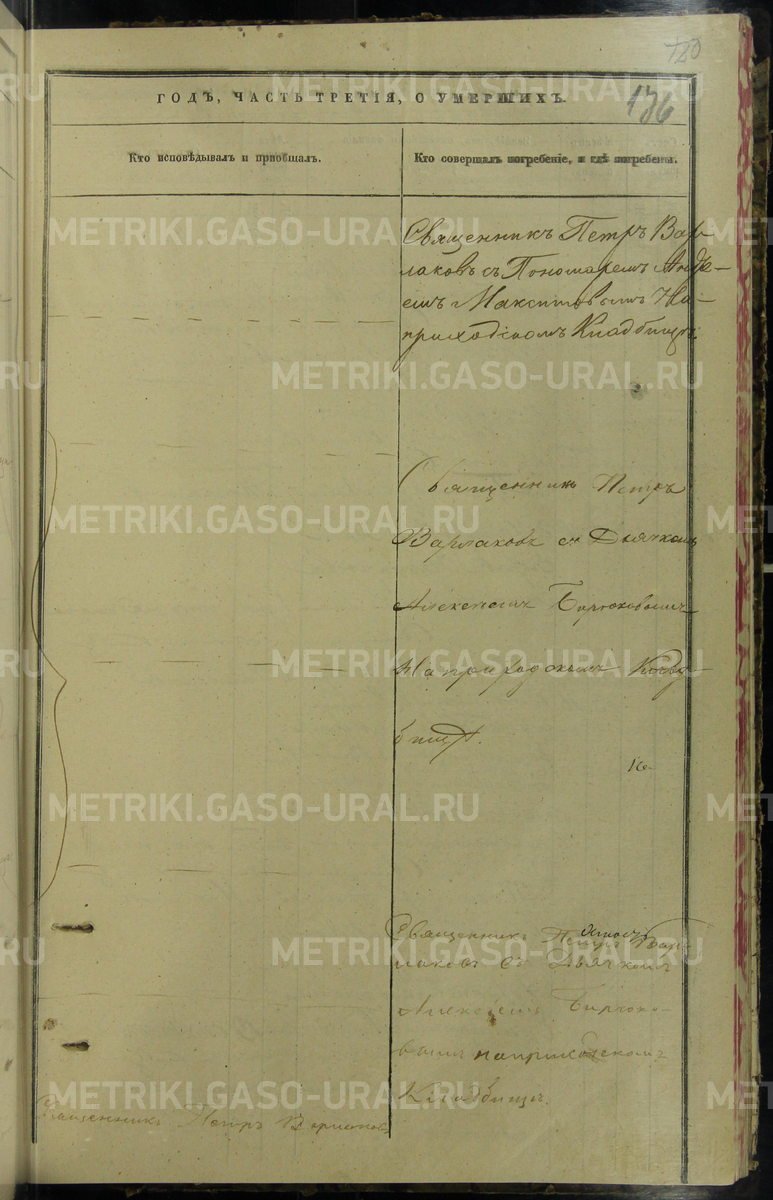 136
ГОДЪ, ЧАСТЬ ТРЕТІЯ, О УМЕРШИХЪ.
Кто исповѣдывалъ и пріобщалъ.
Кто совершалъ погребеніе, и гдѣ погребены.
Священникъ Петръ Вар-
лаковъ съ Пономаремъ Андре-
емъ Максимовымъ На-
приходскомъ Кладбищѣ.
Священникъ Петръ
Варлаковъ съ Дьячкомъ
Алексѣемъ Бирюковымъ
На приходскомъ Клад-
бищѣ.
Священникъ Петръ Вар-
лаковъ съ Дьячкомъ
Алексѣемъ Бирюко-
вымъ на приходскомъ
Кладбищѣ.
Священникъ Петръ Варлаковъ
METRIKI.GASO-URAL.RU